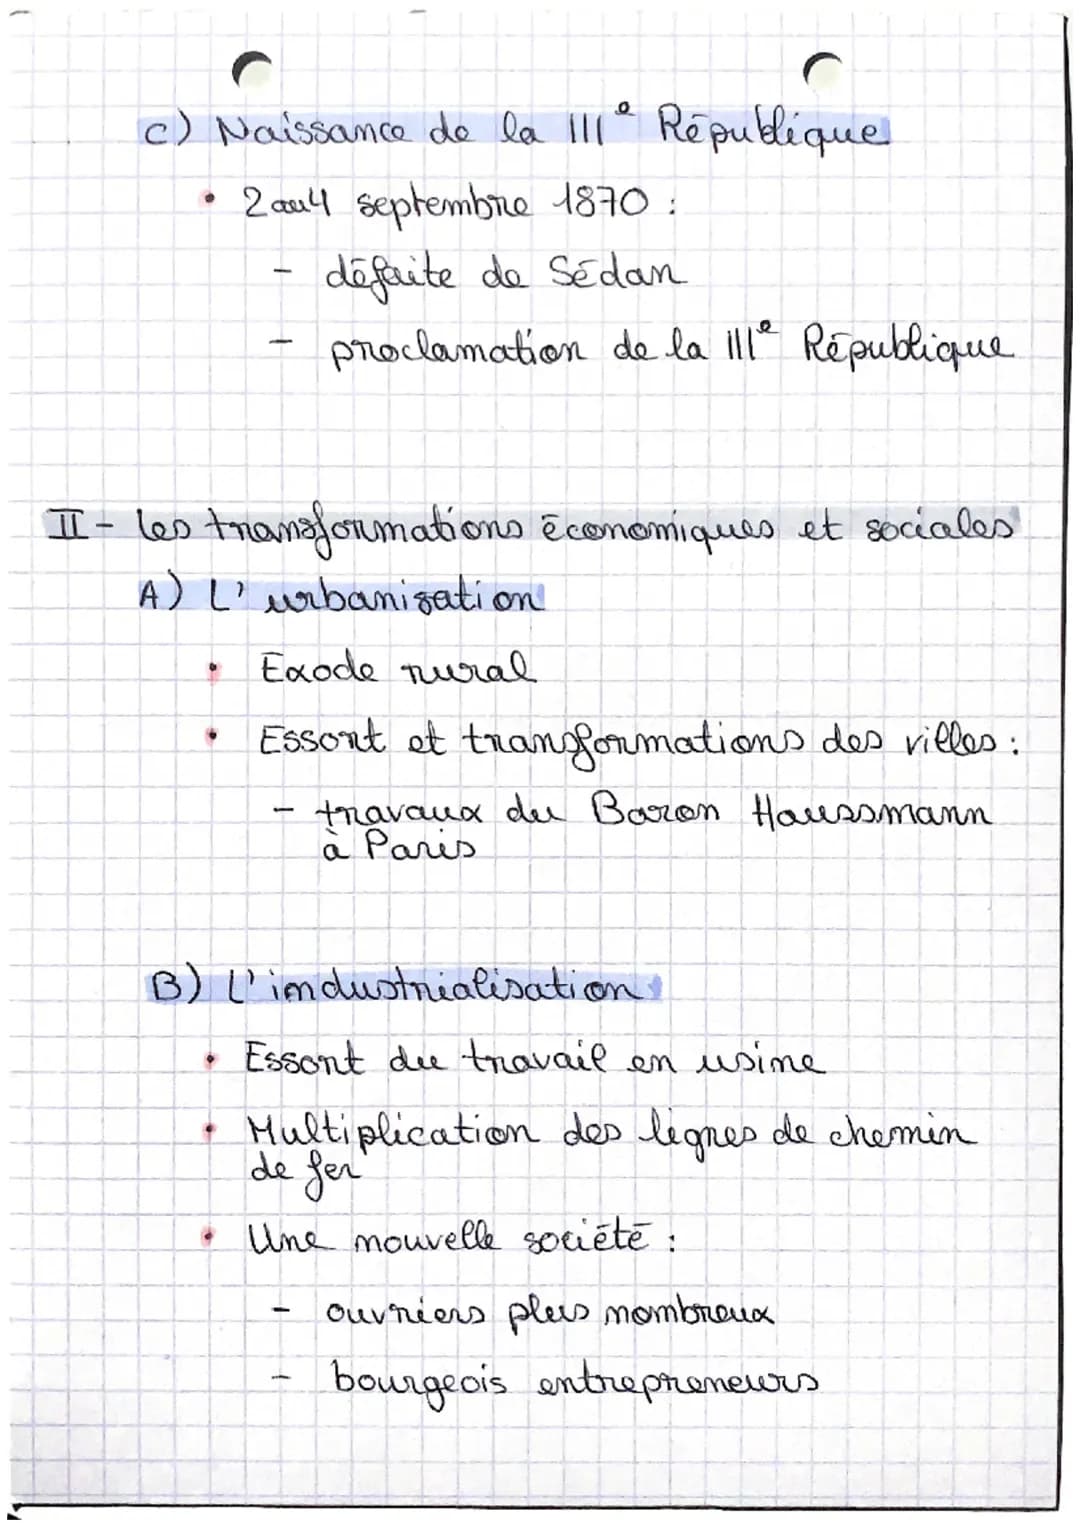 C) Naissance de la IIIe République
• 2 au 4 septembre 1870 :
- défaite de Sédan
- proclamation de la IIIe République
II - les transformations économiques et sociales
A) L'urbanisation
• Exode rural
• Essort et transformations des villes :
- travaux du Baron Haussmann
à Paris
B) L'industrialisation
• Essort du travail en usine
• Multiplication des lignes de chemin
de fer
• Une nouvelle société :
- ouvriers plus nombreux
- bourgeois entrepreneurs